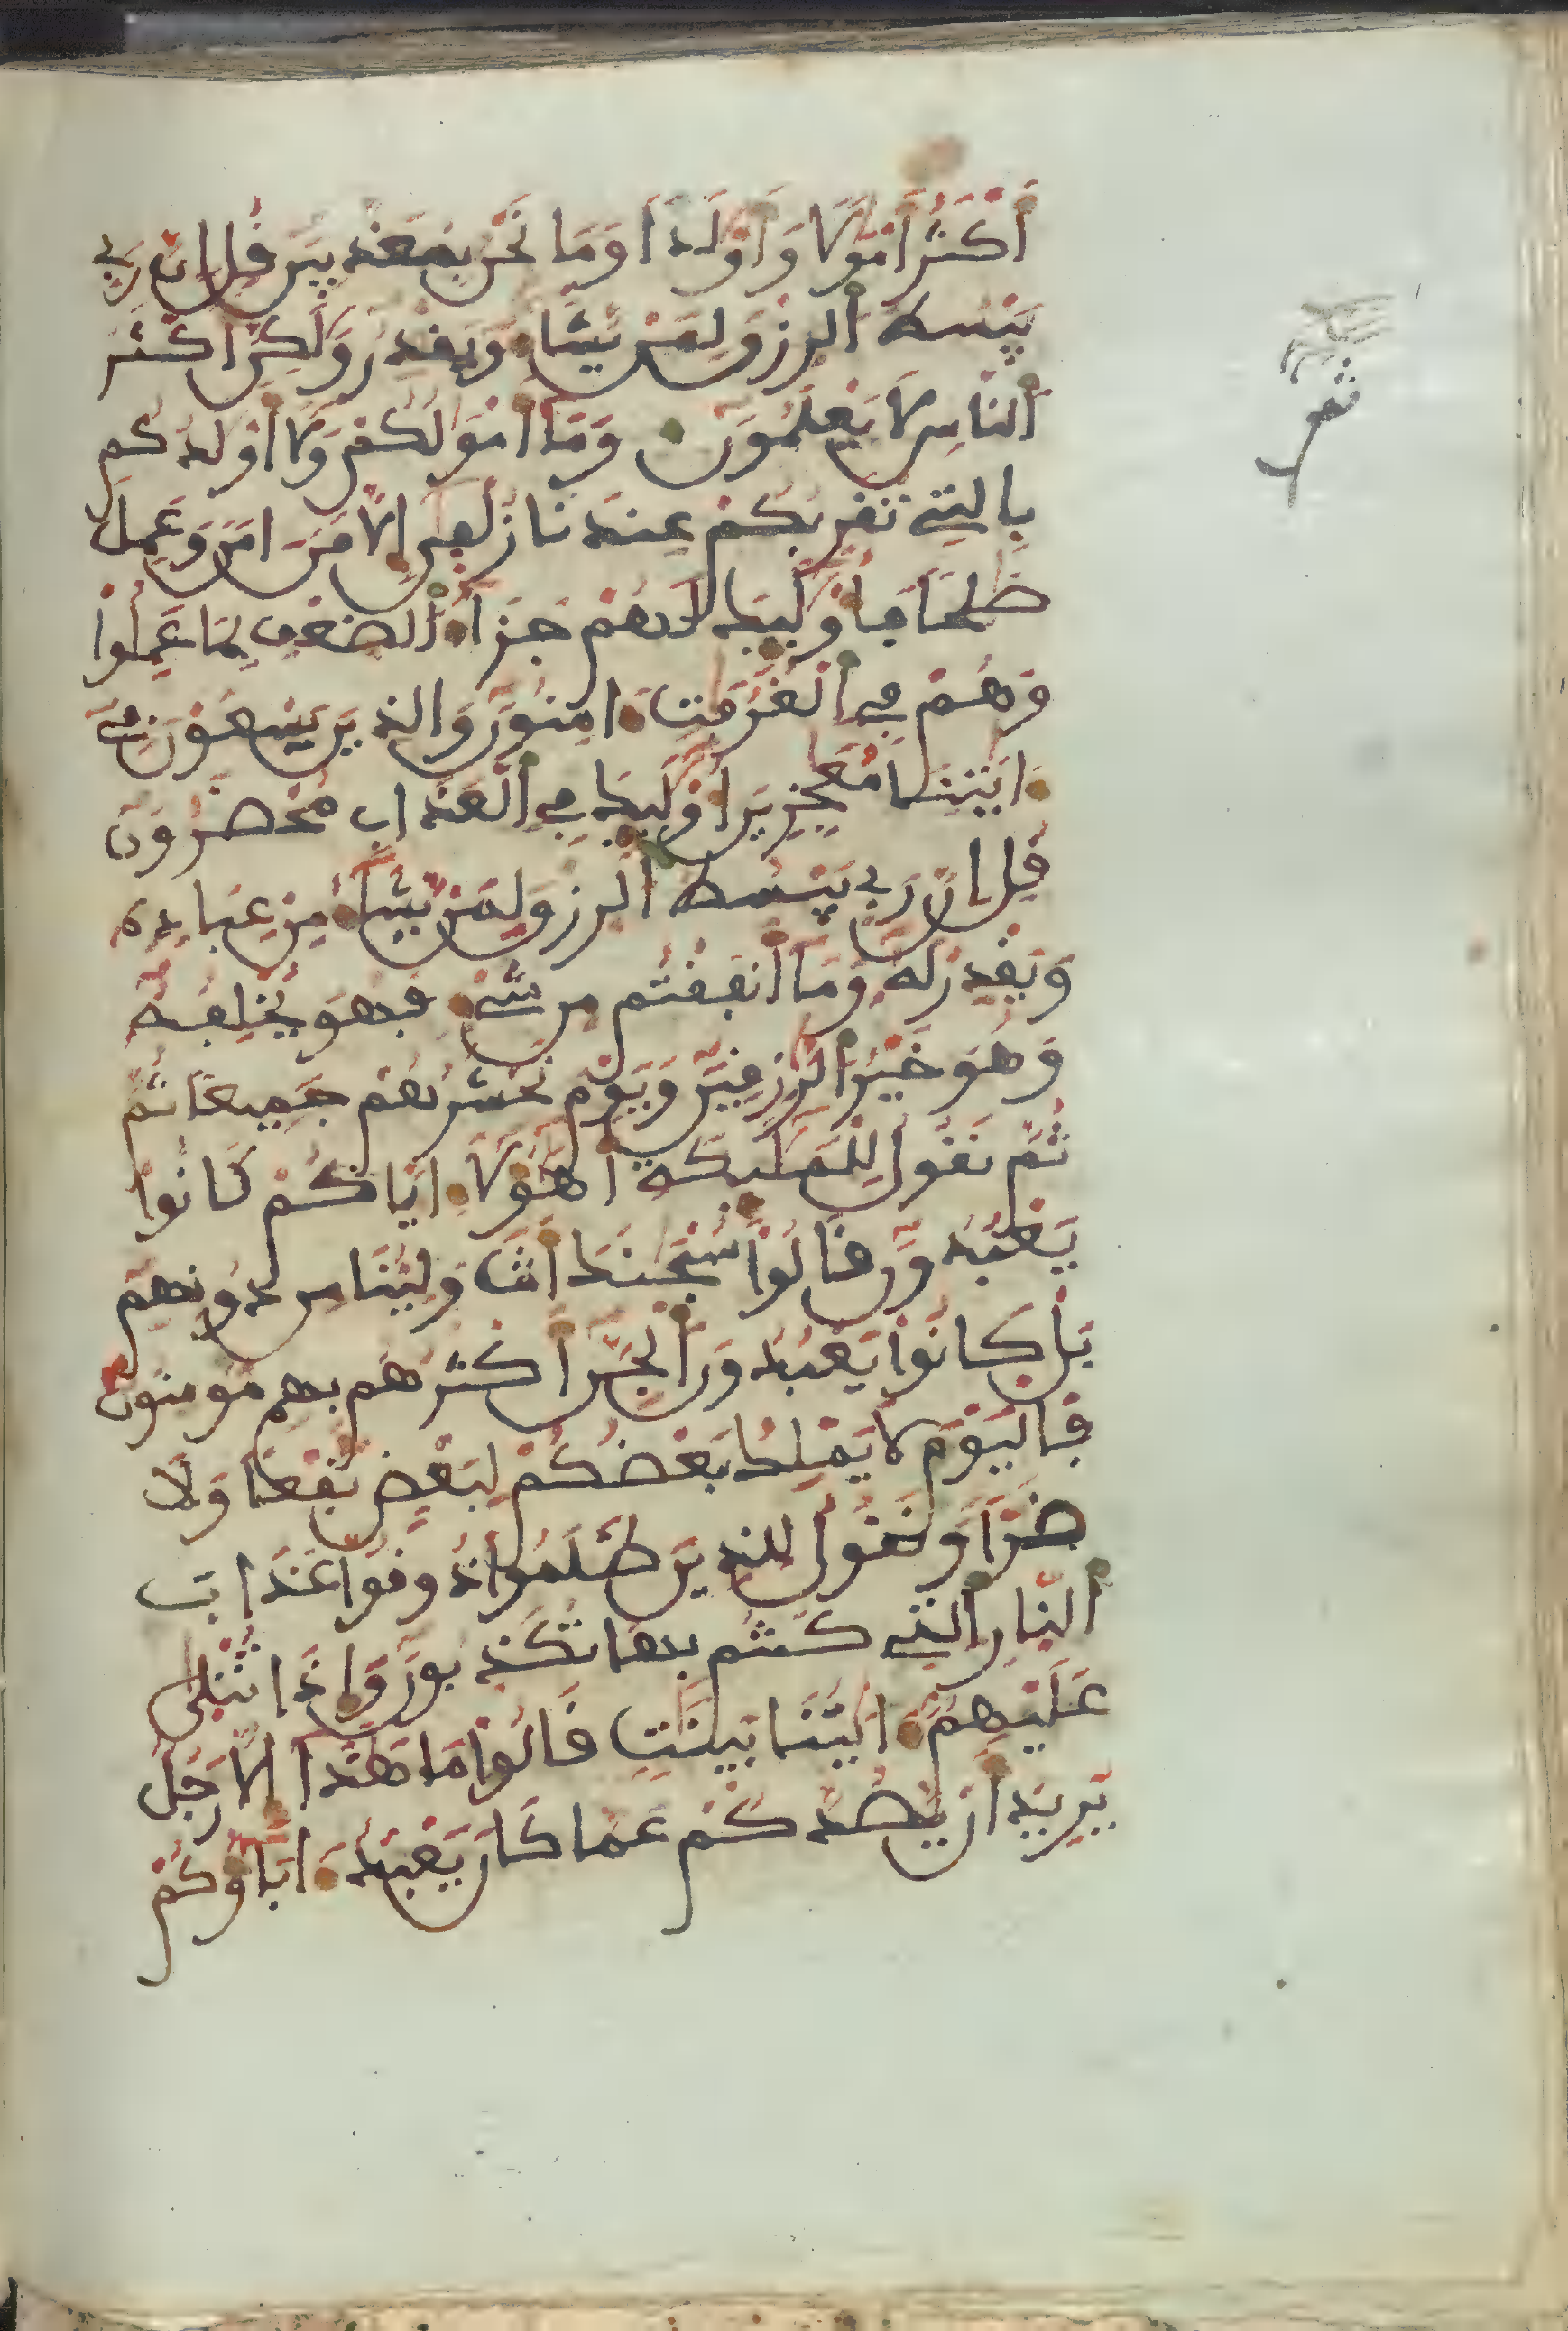 أَكْثَرُ أَمْوَٰلًا وَأَوْلَٰدًا وَمَا نَحْنُ بِمُعَذَّبِينَ قُلِ انَّ رَبِّے
يَبْسُطُ اُ۬لرِّزْقَ لِمَنْ يَّشَآءُ وَيَقْدِرُ وَلَٰكِنَّ أَكْثَرَ
اَ۬لنَّاسِ لَا يَعْلَمُونَ وَمَآ أَمْوَٰلُكُمْ وَلَآ أَوْلَٰدُكُم
بِالتِے تُقَرِّبُكُمْ عِندَنَا زُلْفَىٰٓ إِلَّا مَنَ اٰمَنَ وَعَمِلَ
صَٰلِحًا فَأُوْلَٰٓئِكَ لَهُمْ جَزَآءُ اُ۬لضِّعْفِ بِمَا عَمِلُواْ
وَهُمْ فِے اِ۬لْغُرُفَٰتِ ءَامِنُونَ وَالذِينَ يَسْعَوْنَ فِےٓ
ءَايَٰتِنَا مُعَٰجِزِينَ أُوْلَٰٓئِكَ فِے اِ۬لْعَذَابِ مُحْضَرُونَ
قُلِ انَّ رَبِّے يَبْسُطُ اُ۬لرِّزْقَ لِمَنْ يَّشَآءُ مِنْ عِبَادِهِۦ
وَيَقْدِرُ لَهُۥ وَمَآ أَنفَقْتُم مِّن شَےْءٍ فَهُوَ يُخْلِفُهُۥ
وَهُوَ خَيْرُ اُ۬لرَّٰزِقِينَ وَيَوْمَ نَحْشُرُهُمْ جَمِيعًا ثُمَّ
ثُمَّ نَقُولُ لِلْمَلَٰٓئِكَةِ أَهَٰٓؤُلَآءِ ايَّاكُمْ كَانُواْ
يَعْبُدُونَ قَالُواْ سُبْحَٰنَكَ أَنتَ وَلِيُّنَا مِن دُونِهِم
بَلْ كَانُواْ يَعْبُدُونَ اَ۬لْجِنَّ أَكْثَرُهُم بِهِم مُّومِنُونَ
فَالْيَوْمَ لَا يَمْلِكُ بَعْضُكُمْ لِبَعْضٍ نَّفْعًا وَلَا
ضَرًّا وَنَقُولُ لِلذِينَ ظَلَمُواْ ذُوقُواْ عَذَابَ
اَ۬لنَّارِ اِ۬لتِے كُنتُم بِهَا تُكَذِّبُونَ وَإِذَا تُتْلَىٰ
عَلَيْهِمُۥٓ ءَايَٰتُنَا بَيِّنَٰتٍ قَالُواْ مَا هَٰذَآ إِلَّا رَجُلٌ
يُرِيدُ أَنْ يَّصُدَّكُمْ عَمَّا كَانَ يَعْبُدُ ءَابَآؤُكُمْ